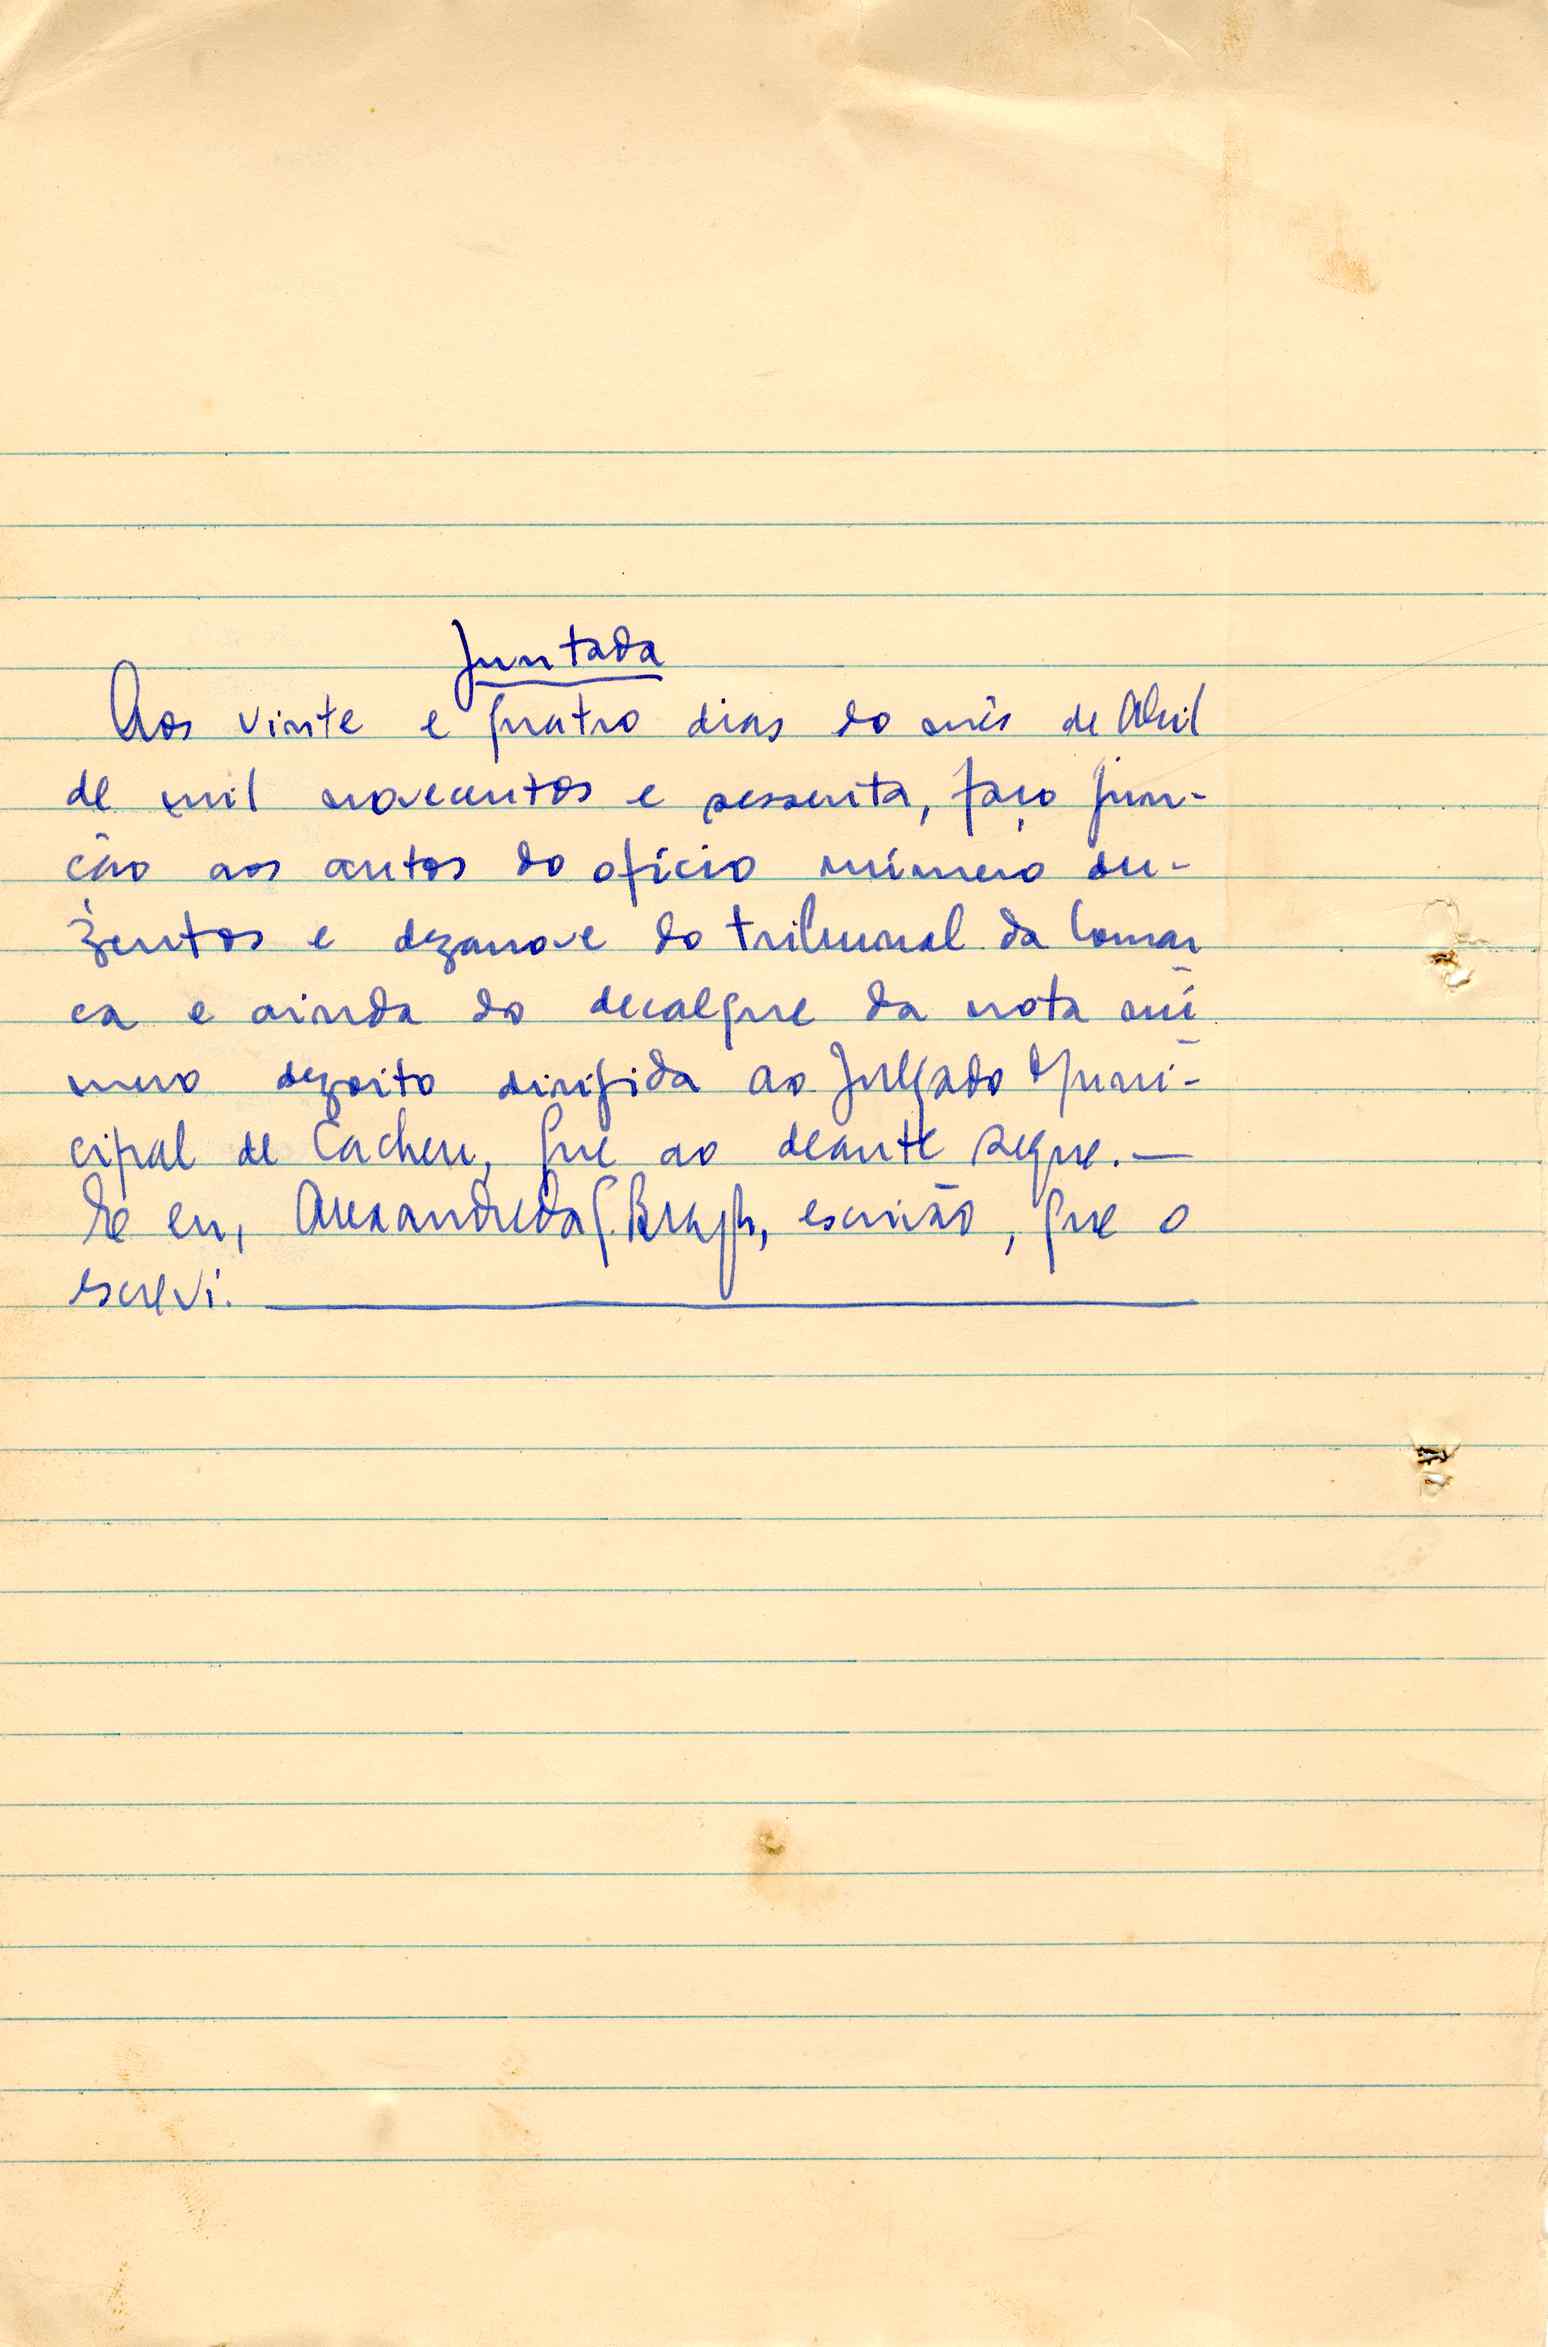 Juntada
Aos vinte e quatro dias do mês de Abril
de mil novecentos e sessenta, faço jun-
ção aos autos do ofício número du-
zentos e dezanove do tribunal da Comar
ca e ainda do decalque da nota nú
mero dezoito dirigida ao Julgado Muni-
cipal de Cacheu, que ao deante segue.—
E eu, Alexandre da, escrivão, que o
escrevi.